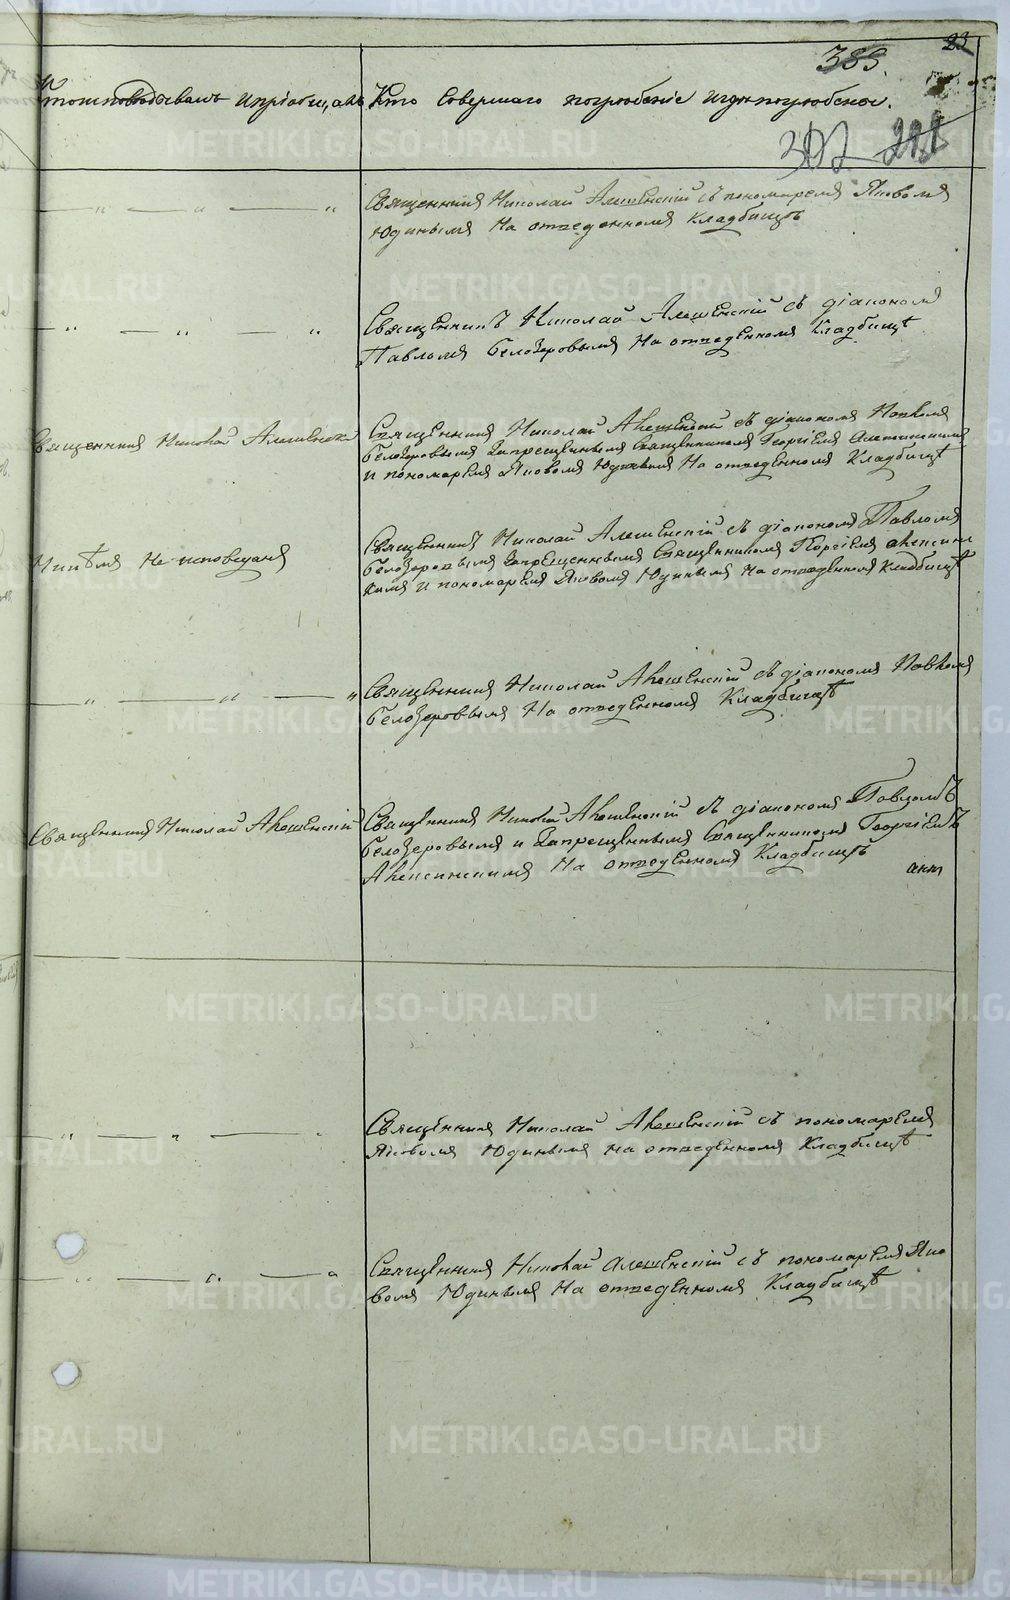 23
388.
Кто исповедывалъ и пріобщалъ
Кто совершалъ погребеніе и где погребены.
302 281
Священникъ Николай Алешенскій съ пономаремъ Яковомъ
Юдинымъ На отведенномъ Кладбищѣ
Священникъ Николай Алешенскій съ діакономъ
Павломъ Белозеровымъ На отведенномъ Кладбищѣ
Священникъ Николай Алешенскій
Священникъ Николай Алешенскій съ діакономъ Павломъ
Белозеровымъ Запрещеннымъ Священникомъ Георгіемъ
и пономаремъ Яковомъ Юдинымъ На отведенномъ Кладбищѣ
Никѣмъ Не исповеданъ
Священникъ Николай Алешенскій съ діакономъ Павломъ
Белозеровымъ Запрещеннымъ Священникомъ Георгіемъ Алексинс
кимъ и пономаремъ Яковомъ Юдинымъ На отведенномъ Кладбищѣ
Священникъ Николай Алешенскій съ діакономъ Павломъ
Белозеровымъ На отведенномъ Кладбищѣ
Священникъ Николай Алешенскій
Священникъ Николай Алешенскій съ діакономъ Павломъ
Белозеровымъ и Запрещеннымъ Священникомъ Георгіемъ
Алексинскимъ На отведенномъ Кладбищѣ
Священникъ Николай Алешенскій съ пономаремъ
Яковомъ Юдинымъ на отведенномъ Кладбищѣ
Священникъ Николай Алешенскій съ пономаремъ Яко
вомъ Юдинымъ На отведенномъ Кладбищѣ
METRIKI.GASO-URAL.RU